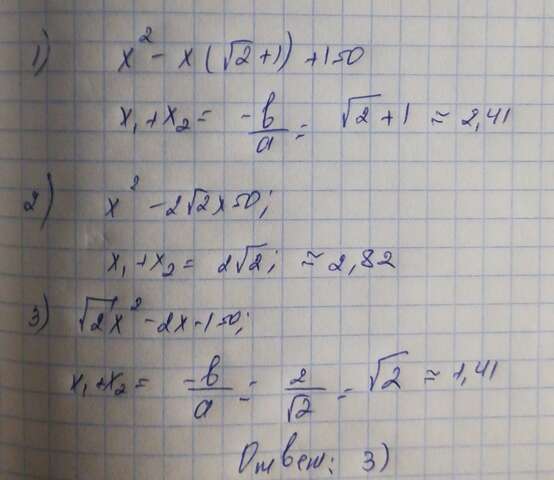 1) x² - x(√2+1) + 1=0
x₁+x₂ = -b/a = √2+1 ≈ 2,41
2) x² - 2√2x=0;
x₁+x₂ = 2√2; ≈ 2,82
3) √2x² - 2x - 1=0;
x₁+x₂ = -b/a = 2/√2 = √2 ≈ 1,41
Ответ: 3)